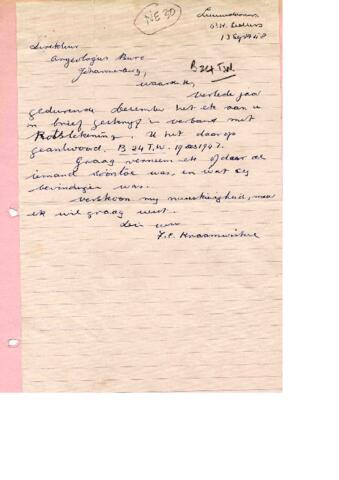 NE 30
Leeuwdoorns
13 Sept 1948
Direkteur
Argeologies Buro
Johannesburg,
B24 T.W.
Waarde Hr,
Verlede jaar
gedurende Desember het ek aan u
'n brief geskryf in verband met
Rotstekening. U het daarop
geantwoord. B 24 T.W. 19 Des 1947.
Graag verneem ek of daar al
iemand soontoe was, en wat sy
bevindings was.
Verskoon my nuuskierigheid, maar
ek wil graag weet.